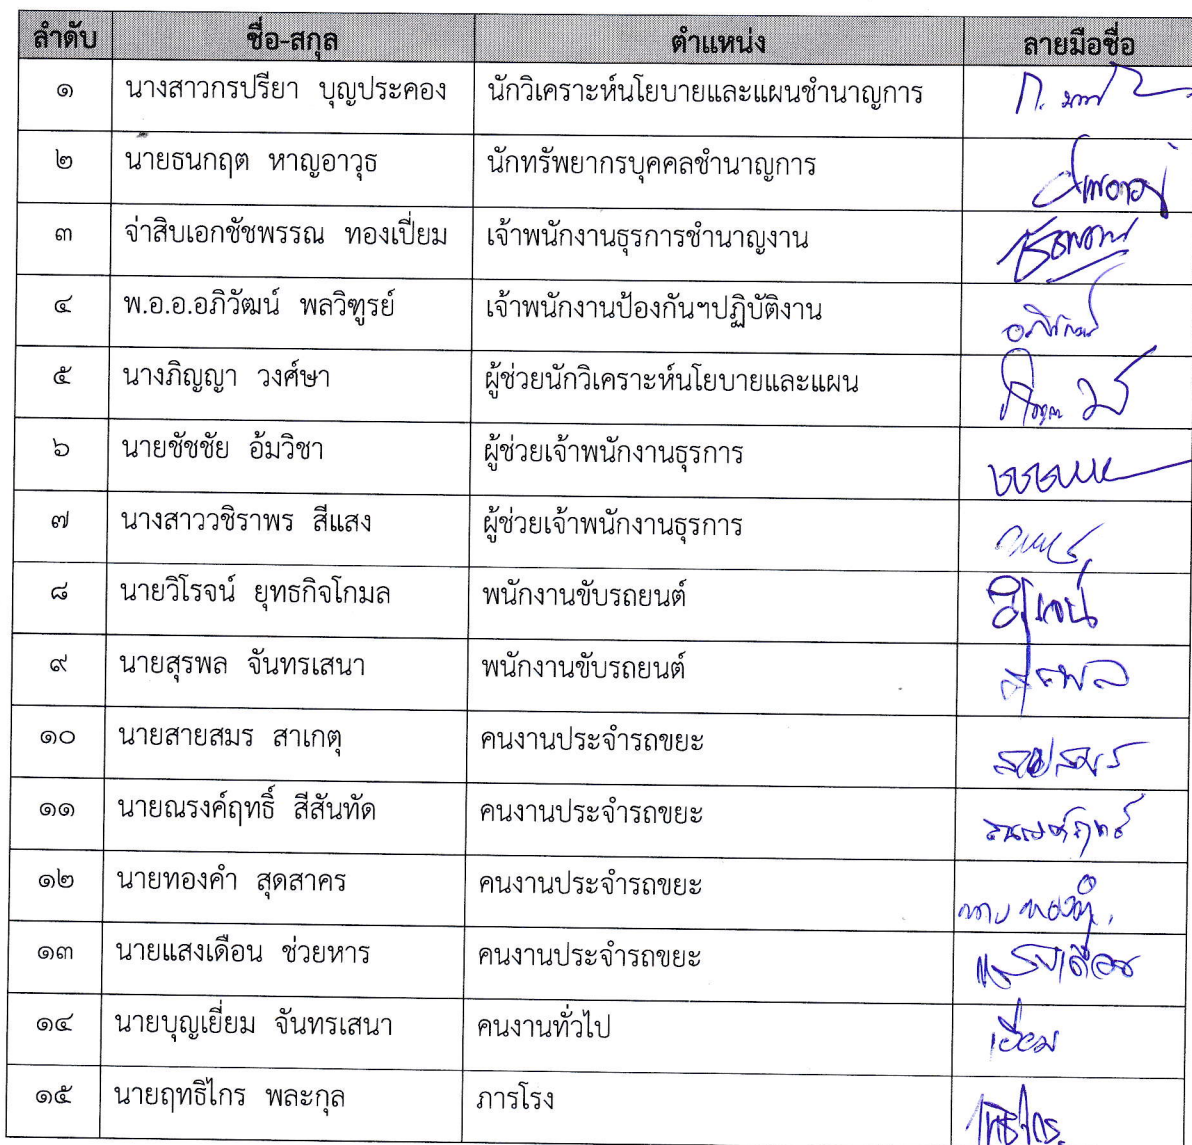 ลำดับ ชื่อ-สกุล ตำแหน่ง ลายมือชื่อ
๑ นางสาวกรปรียา บุญประคอง นักวิเคราะห์นโยบายและแผนชำนาญการ
๒ นายธนกฤต หาญอาวุธ นักทรัพยากรบุคคลชำนาญการ
๓ จ่าสิบเอกชัชพรรณ ทองเปี่ยม เจ้าพนักงานธุรการชำนาญงาน
๔ พ.อ.อ.อภิวัฒน์ พลวิฑูรย์ เจ้าพนักงานป้องกันฯปฏิบัติงาน
๕ นางภิญญา วงศ์ษา ผู้ช่วยนักวิเคราะห์นโยบายและแผน
๖ นายชัชชัย อ้มวิชา ผู้ช่วยเจ้าพนักงานธุรการ
๗ นางสาววชิราพร สีแสง ผู้ช่วยเจ้าพนักงานธุรการ
๘ นายวิโรจน์ ยุทธกิจโกมล พนักงานขับรถยนต์ วิโรจน์
๙ นายสุรพล จันทรเสนา พนักงานขับรถยนต์ สุรพล
๑๐ นายสายสมร สาเกตุ คนงานประจำรถขยะ สายสมร
๑๑ นายณรงค์ฤทธิ์ สีสันทัด คนงานประจำรถขยะ
๑๒ นายทองคำ สุดสาคร คนงานประจำรถขยะ
๑๓ นายแสงเดือน ช่วยหาร คนงานประจำรถขยะ แสงเดือน
๑๔ นายบุญเยี่ยม จันทรเสนา คนงานทั่วไป
๑๕ นายฤทธิไกร พละกุล ภารโรง